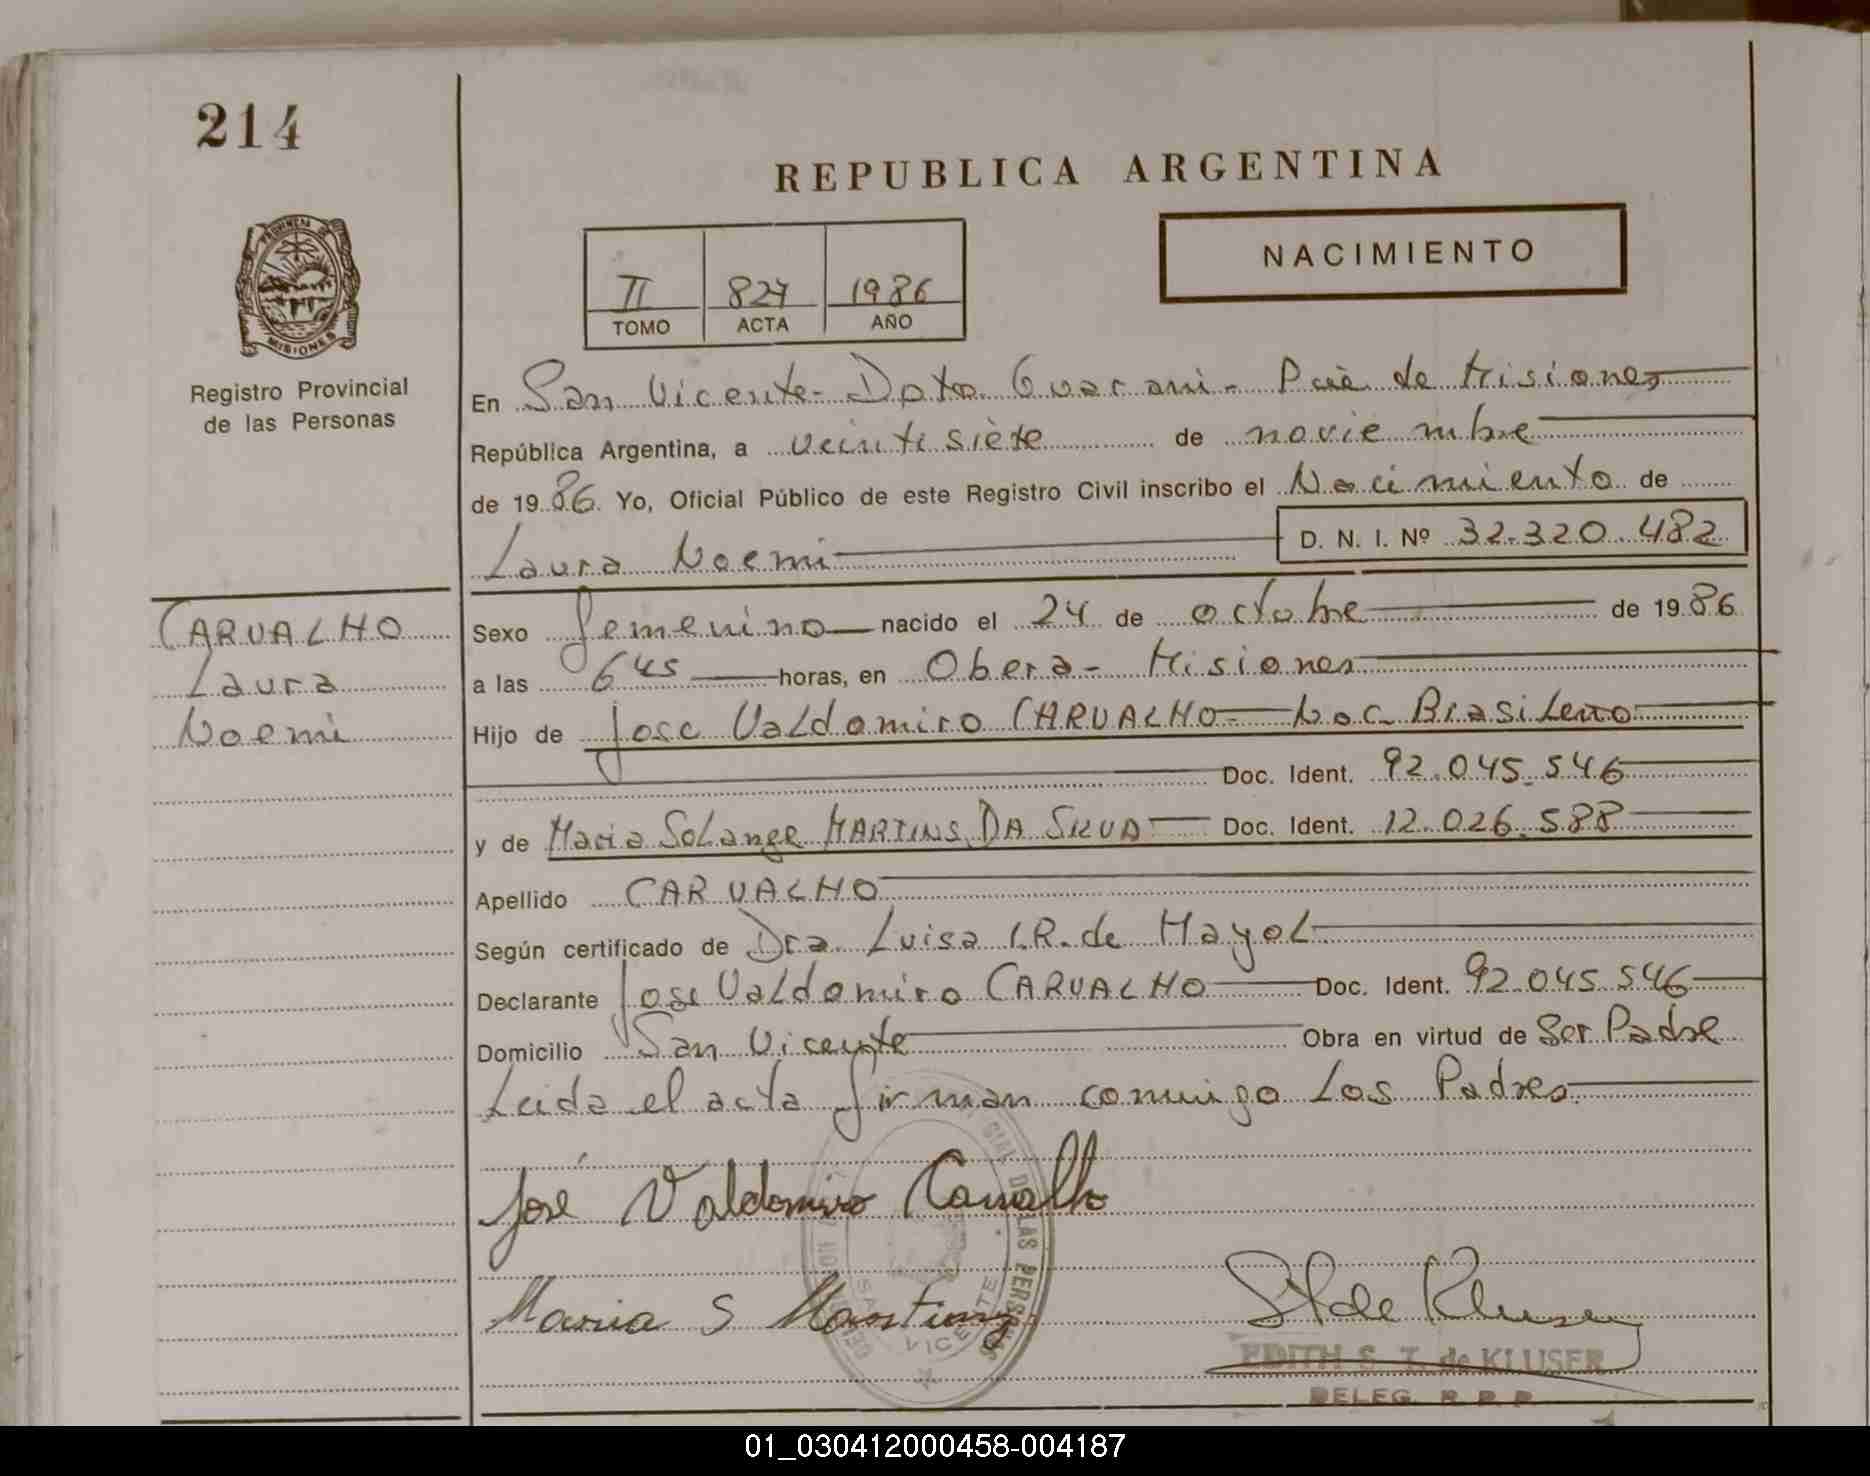 214
REPUBLICA ARGENTINA
NACIMIENTO
II 827 1986
TOMO ACTA AÑO
PROVINCIA DE
MISIONES
Registro Provincial
de las Personas
En San Vicente - Dpto Guarani - Pcia de Misiones
República Argentina, a veintisiete de noviembre
de 1986 Yo, Oficial Público de este Registro Civil inscribo el Nacimiento de
Laura Noemi D. N. I. Nº 32.320.482
CARVALHO
Laura
Noemi
Sexo femenino nacido el 24 de octubre de 1986
a las 6 45 horas, en Obera - Misiones
Hijo de Jose Valdomiro CARVALHO - Nac. Brasileño
Doc. Ident. 92.045.546
y de Maria Solange MARTINS DA SILVA Doc. Ident. 12.026.588
Apellido CARVALHO
Según certificado de Dra. Luisa I.R. de Mayol
Declarante Jose Valdomiro CARVALHO Doc. Ident. 92.045.546
Domicilio San Vicente Obra en virtud de Ser Padre
Leida el acta firman conmigo Los Padres
José Valdomiro Carvalho
Maria S Martins
SAN VICENTE
DE LAS PERSONAS
St de Kluser
EDITH S. T. de KLUSER
DELEG. R P P
01_030412000458-004187